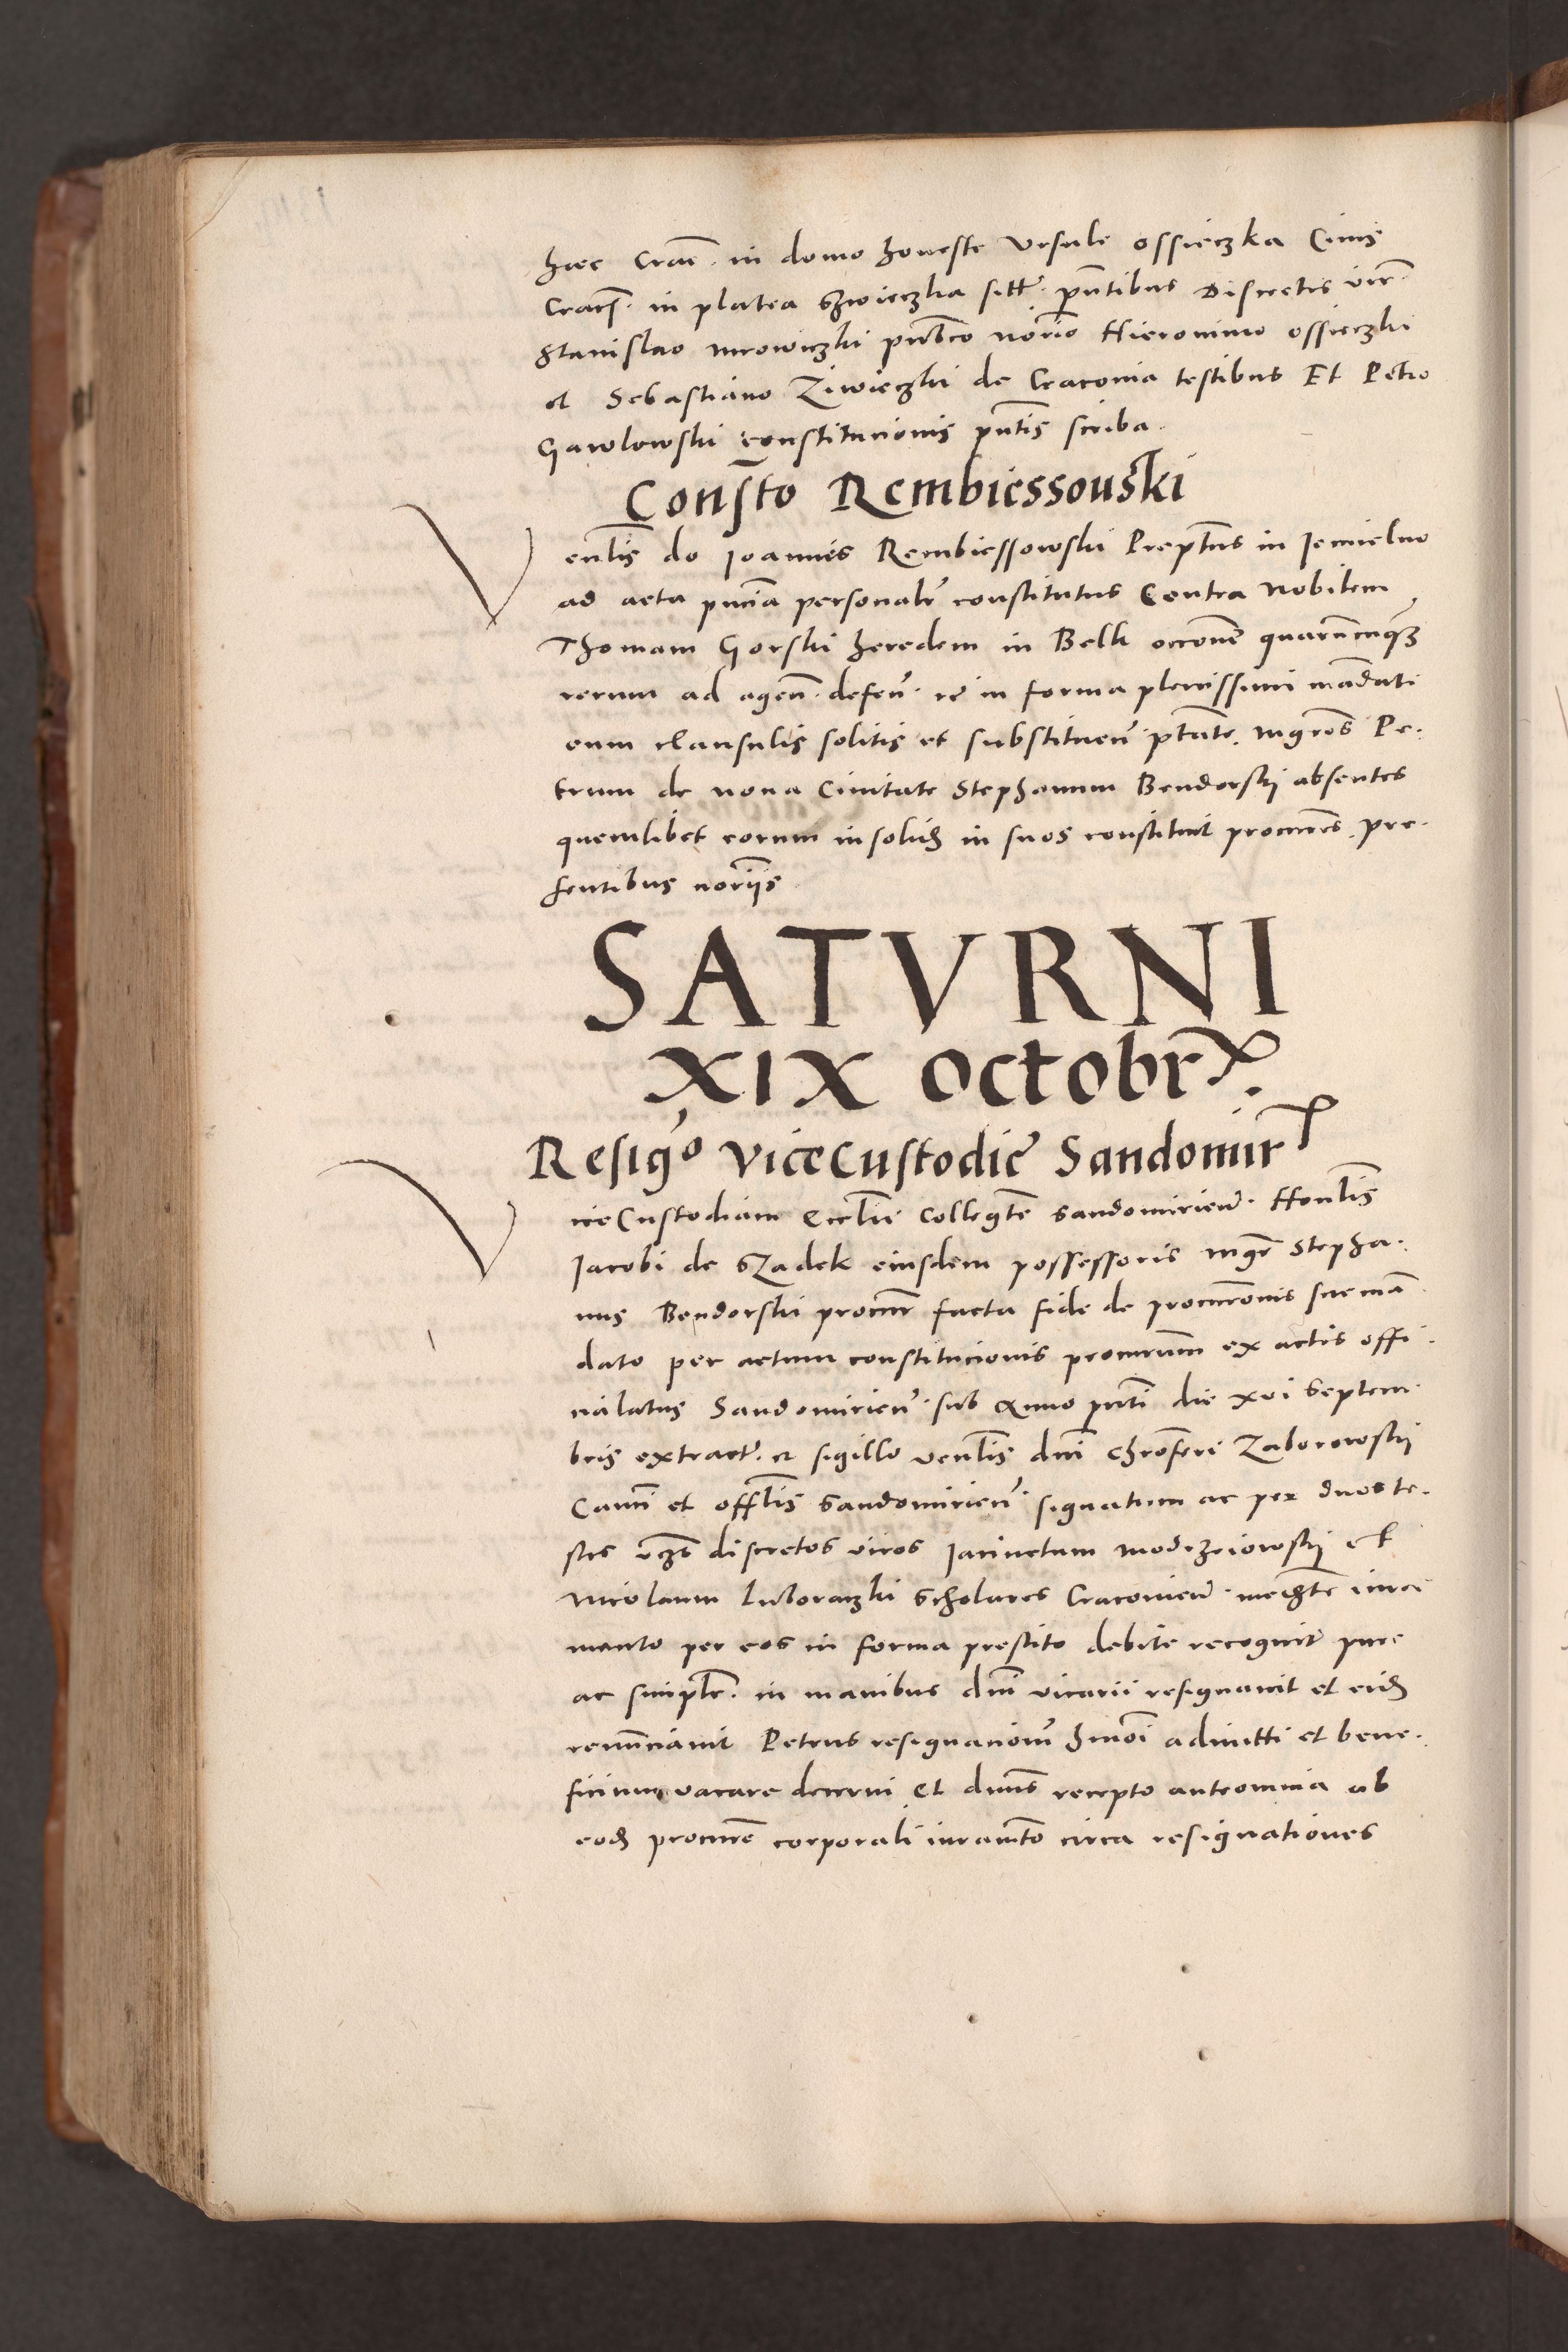 haec Crac̄. in domo honeste Vrsule ossieczka Ciuis
Crac̄. in platea Szwieczka sitt̄. pn̄tibus Discretis vir̄.
Stanislao mrowiczki publ̄co nōrio Hieronimo ossieczki
et Sebastiano Ziwieczki de Cracouia testibus Et Petro
Gawlowski constitucionis pn̄tis scriba.
Consto Rembiessouski
Venl̄is do Ioannes Rembiessowski Prep̄tus in Iemielno
ad acta pn̄cia personalr̄ constitutus Contra Nobilem
Thomam Gorski heredem in Belk occ̄one quarūcuq̄
rerum ad agen̄. defen̄. rē in forma plenissimi mādati
cum clausulis solitis et substituen̄ p̄tate. mgr̄os Pe.
trum de noua Ciuitate Stephanum Bendorskj absentes
quemlibet eorum insolid̄ in suos constituit procurēs. pre.
sentibus noriis
SATVRNI
XIX octobr̄.
Resig̊o viceCustodie Sandomir̄
ViceCustodiam Eccl̄ie Colleḡte Sandomirien̄. Honl̄is
Iacobi de Szadek eiusdem possessoris mgr̄ Stepha.
nus Bendorski procur̄ facta fide de procurōnis sue man̄
dato per actum constitucionis procurum̄ ex actis offi.
cialatus Sandomirien̄. sub Anno pn̄ti die xvi Septem.
bris extract̄. et sigillo venl̄is dn̄i Chrōferi Zaborowskj
Can̄ci et offl̄is Sandomirien̄. signatum ac per duos te.
stes vz̄ discretos viros Iacinctum modrzeiowskj et
Nicolaum luboraczki Scholares Cracouien̄. med̄te iura
mento per eos in forma prestito debite recognit̄ pure
ac simpl̄r. in manibus dn̄i vicarii resignauit et eid̄
renūciauit Petens resignacion̄ hmōi admitti et bene.
ficium vacare decerni. Et dn̄us recepto anteomnia ab
eod̄ procurē corporali iuram̄to circa resignationes